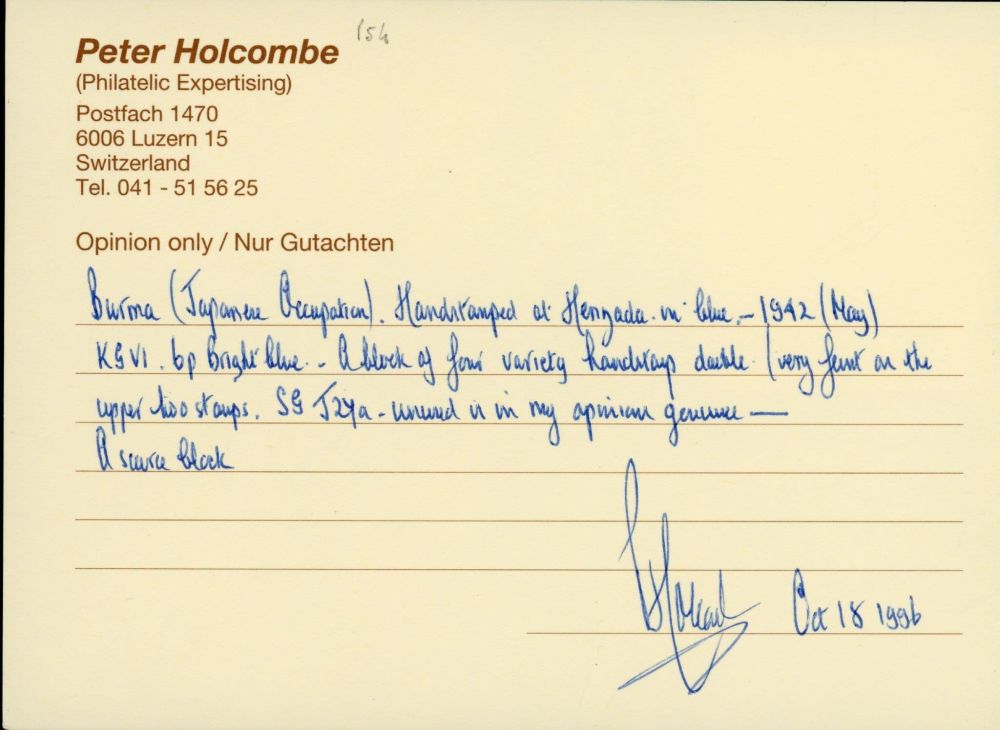 Peter Holcombe
(Philatelic Expertising)
Postfach 1470
6006 Luzern 15
Switzerland
Tel. 041 - 51 56 25
Opinion only / Nur Gutachten
Burma (Japanese Occupation). Handstamped at Henzada in blue - 1942 (May)
KGVI. 6p Bright blue. - A block of four variety handstamp double (very faint on the
upper two stamps. SG J24a - unused is in my opinion genuine —
A scarce block
Oct 18 1996